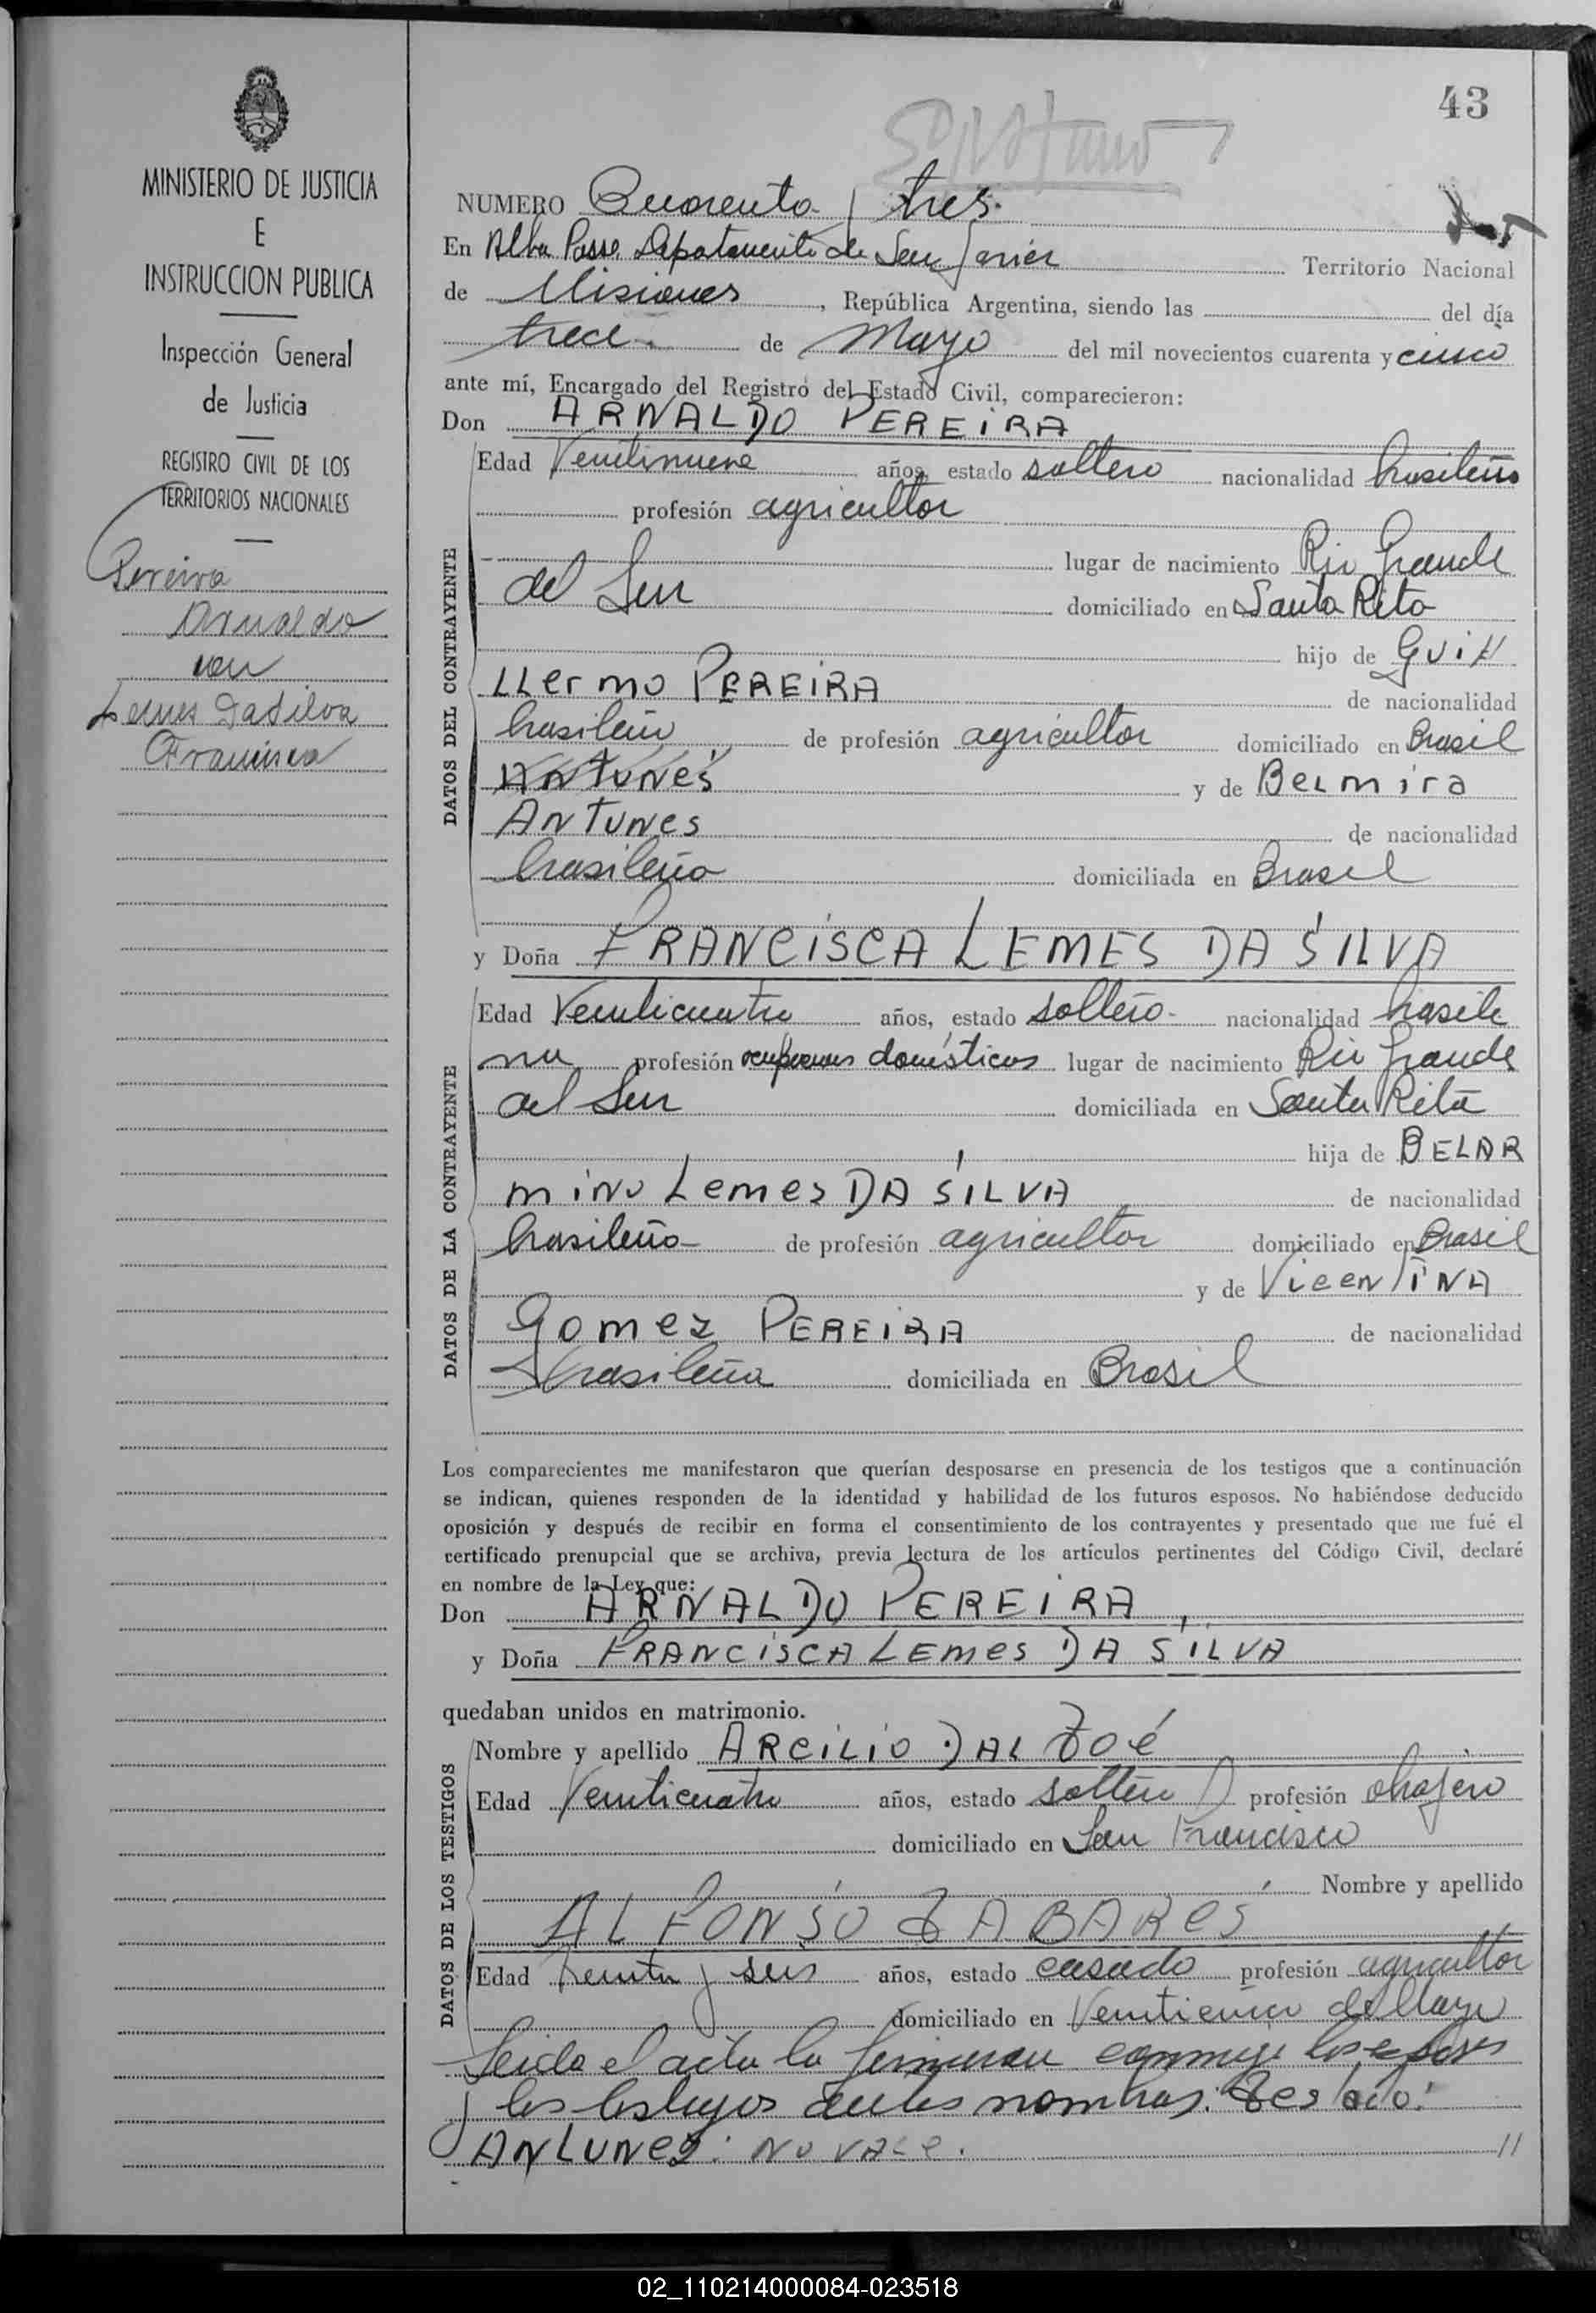 43
MINISTERIO DE JUSTICIA
E
INSTRUCCION PUBLICA
Inspección General
de Justicia
REGISTRO CIVIL DE LOS
TERRITORIOS NACIONALES
Pereira
Arnaldo
con
Lemes DaSilva
Francisca
NUMERO Cuarenta y tres.
En Alba Posse, Departamento de San Javier Territorio Nacional
de Misiones, República Argentina, siendo las del día
trece de Mayo del mil novecientos cuarenta y cinco
ante mí, Encargado del Registro del Estado Civil, comparecieron:
Don ARNALDO PEREIRA
DATOS DEL CONTRAYENTE
Edad Veintinueve años, estado soltero nacionalidad brasileño
profesión agricultor
lugar de nacimiento Rio Grande
del Sur domiciliado en Santa Rita
hijo de GUIL
LLermo PEREIRA de nacionalidad
brasileño de profesión agricultor domiciliado en Brasil
ANTUNES y de BELMIRA
ANTUNES de nacionalidad
brasileña domiciliada en Brasil
y Doña FRANCISCA LEMES DA SILVA
DATOS DE LA CONTRAYENTE
Edad Veinticuatro años, estado soltera nacionalidad brasile
na profesión ocupaciones domésticas lugar de nacimiento Rio Grande
del Sur domiciliada en Santa Rita
hija de BELAR
mino Lemes DA SILVA de nacionalidad
brasileño de profesión agricultor domiciliado en Brasil
y de VicenTINA
Gomez PEREIRA de nacionalidad
brasileña domiciliada en Brasil
Los comparecientes me manifestaron que querían desposarse en presencia de los testigos que a continuación
se indican, quienes responden de la identidad y habilidad de los futuros esposos. No habiéndose deducido
oposición y después de recibir en forma el consentimiento de los contrayentes y presentado que me fué el
certificado prenupcial que se archiva, previa lectura de los artículos pertinentes del Código Civil, declaré
en nombre de la Ley que:
Don ARNALDO PEREIRA
y Doña FRANCISCA LEMES DA SILVA
quedaban unidos en matrimonio.
DATOS DE LOS TESTIGOS
Nombre y apellido ARCILIO DAL ZOÉ
Edad Veinticuatro años, estado soltero profesión obrajero
domiciliado en San Francisco
Nombre y apellido
ALFONSO TABARES
Edad treinta y seis años, estado casado profesión agricultor
domiciliado en Veinticinco de Mayo
Leida el acta la firmaron conmigo los esposos
y los testigos antes nombras. Testado:
ANTUNES: NO VALE. //
02_110214000084-023518